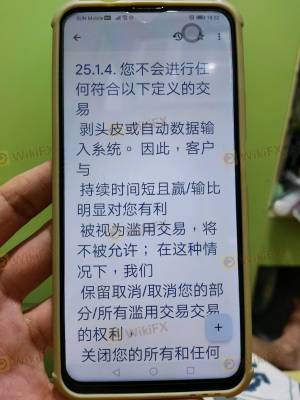 SUN Mobile
18:52
25.1.4. 您不会进行任
何符合以下定义的交
易
剥头皮或自动数据输
入系统。 因此，客户
与
持续时间短且赢/输比
明显对您有利
被视为滥用交易，将
不被允许； 在这种情
况下，我们
保留取消/取消您的部
分/所有滥用交易交易
的权利，
关闭您的所有和任何
WikiFX
WikiFX
WikiFX
WikiFX
WikiFX
WikiFX